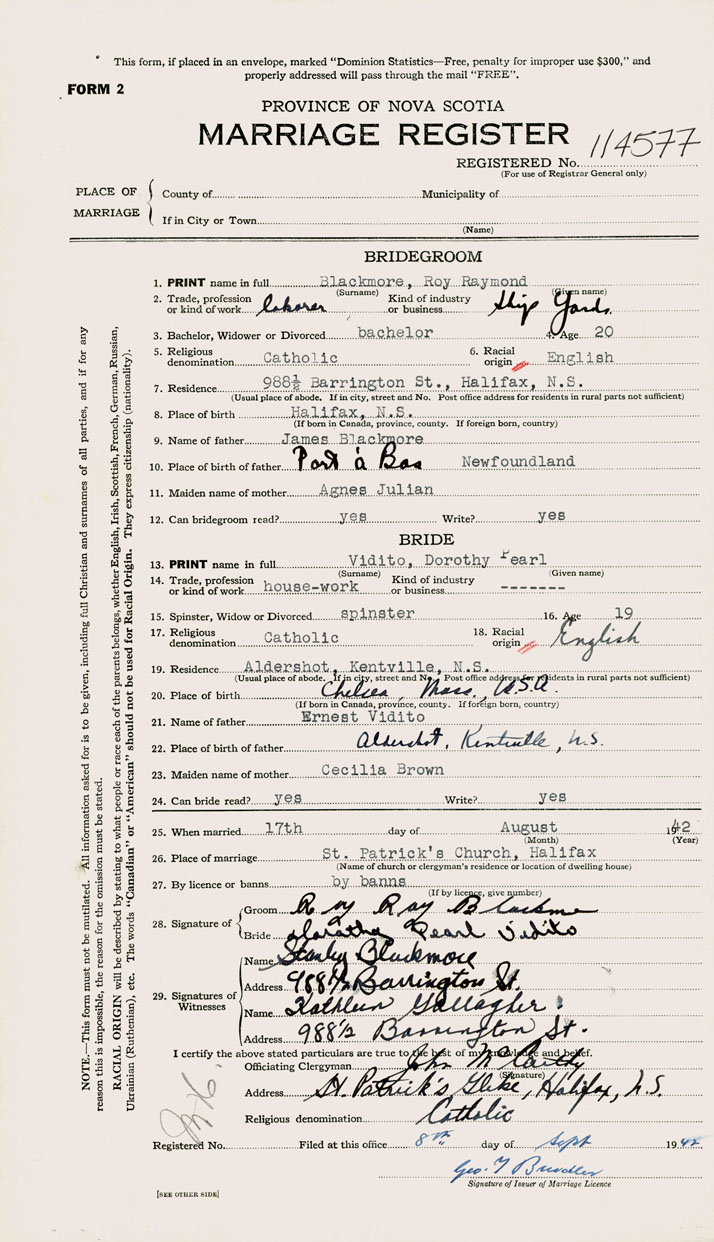 This form, if placed in an envelope, marked “Dominion Statistics—Free, penalty for improper use $300,” and
properly addressed will pass through the mail “FREE”.
FORM 2
PROVINCE OF NOVA SCOTIA
MARRIAGE REGISTER
REGISTERED No. 114577
(For use of Registrar General only)
PLACE OF MARRIAGE
County of Municipality of
If in City or Town
(Name)
BRIDEGROOM
1. PRINT name in full Blackmore, Roy Raymond
(Surname) (Given name)
2. Trade, profession or kind of work laborer Kind of industry or business Ship Yards.
3. Bachelor, Widower or Divorced bachelor 4. Age 20
5. Religious denomination Catholic 6. Racial origin English
7. Residence 988½ Barrington St., Halifax, N.S.
(Usual place of abode. If in city, street and No. Post office address for residents in rural parts not sufficient)
8. Place of birth Halifax, N.S.
(If born in Canada, province, county. If foreign born, country)
9. Name of father James Blackmore
10. Place of birth of father Port à Bas Newfoundland
11. Maiden name of mother Agnes Julian
12. Can bridegroom read? yes Write? yes
BRIDE
13. PRINT name in full Vidito, Dorothy Pearl
(Surname) (Given name)
14. Trade, profession or kind of work house-work Kind of industry or business -------
15. Spinster, Widow or Divorced spinster 16. Age 19
17. Religious denomination Catholic 18. Racial origin English
19. Residence Aldershot, Kentville, N.S.
(Usual place of abode. If in city, street and No. Post office address for residents in rural parts not sufficient)
20. Place of birth Chelsea, Mass., U.S.A.
(If born in Canada, province, county. If foreign born, country)
21. Name of father Ernest Vidito
22. Place of birth of father Aldershot, Kentville, N.S.
23. Maiden name of mother Cecilia Brown
24. Can bride read? yes Write? yes
25. When married 17th day of August 1942
(Month) (Year)
26. Place of marriage St. Patrick's Church, Halifax
(Name of church or clergyman's residence or location of dwelling house)
27. By licence or banns by banns
(If by licence, give number)
28. Signature of
Groom Roy Ray Blackmore
Bride Dorothy Pearl Vidito
29. Signatures of Witnesses
Name Stanley Blackmore
Address 988½ Barrington St.
Name Kathleen Gallagher
Address 988½ Barrington St.
I certify the above stated particulars are true to the best of my knowledge and belief.
Officiating Clergyman John McCarthy
(Signature)
Address St. Patrick's Glebe, Halifax, N.S.
Religious denomination Catholic
Registered No. Filed at this office 8th day of Sept 1942
Geo. T
Signature of Issuer of Marriage Licence
[SEE OTHER SIDE]
NOTE.—This form must not be mutilated. All information asked for is to be given, including full Christian and surnames of all parties, and if for any
reason this is impossible, the reason for the omission must be stated.
RACIAL ORIGIN will be described by stating to what people or race each of the parents belongs, whether English, Irish, Scottish, French, German, Russian,
Ukrainian (Ruthenian), etc. The words “Canadian” or “American” should not be used for Racial Origin. They express citizenship (nationality).